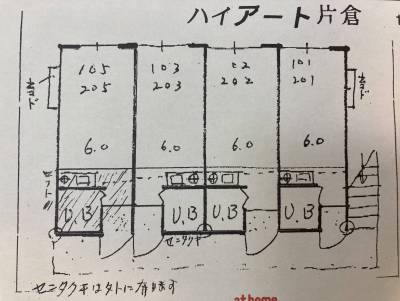 ハイアート片倉
105 103 102 101
205 203 202 201
6.0 6.0 6.0 6.0
U.B U.B U.B U.B
センタクキ
センタクキは外に有ります
at home